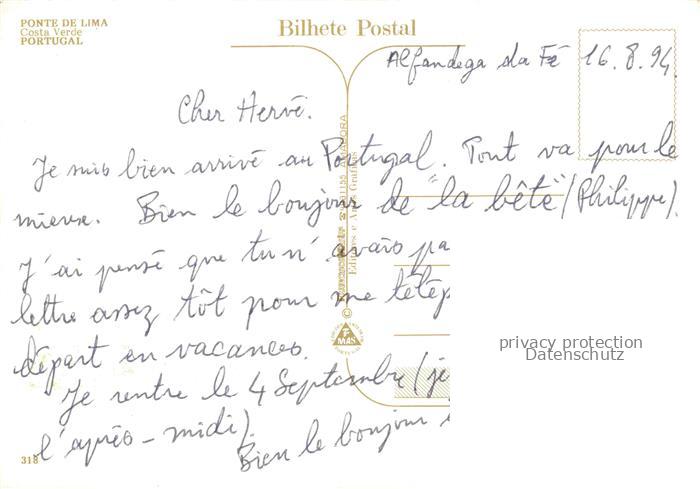 PONTE DE LIMA
Costa Verde
PORTUGAL
Bilhete Postal
Alfandega da Fé 16.8.94.
Cher Hervé.
Je suis bien arrivé au Portugal. Tout va pour le
mieux. Bien le bonjour de "la bête" (Philippe).
J'ai pensé que tu n'avais pa
lettre assez tôt pour me télép
départ en vacances.
Je rentre le 4 Septembre (je
l'après-midi).
Bien le bonjour
318
Edições e Artes Gráficas
©
MAS
privacy protection
Datenschutz